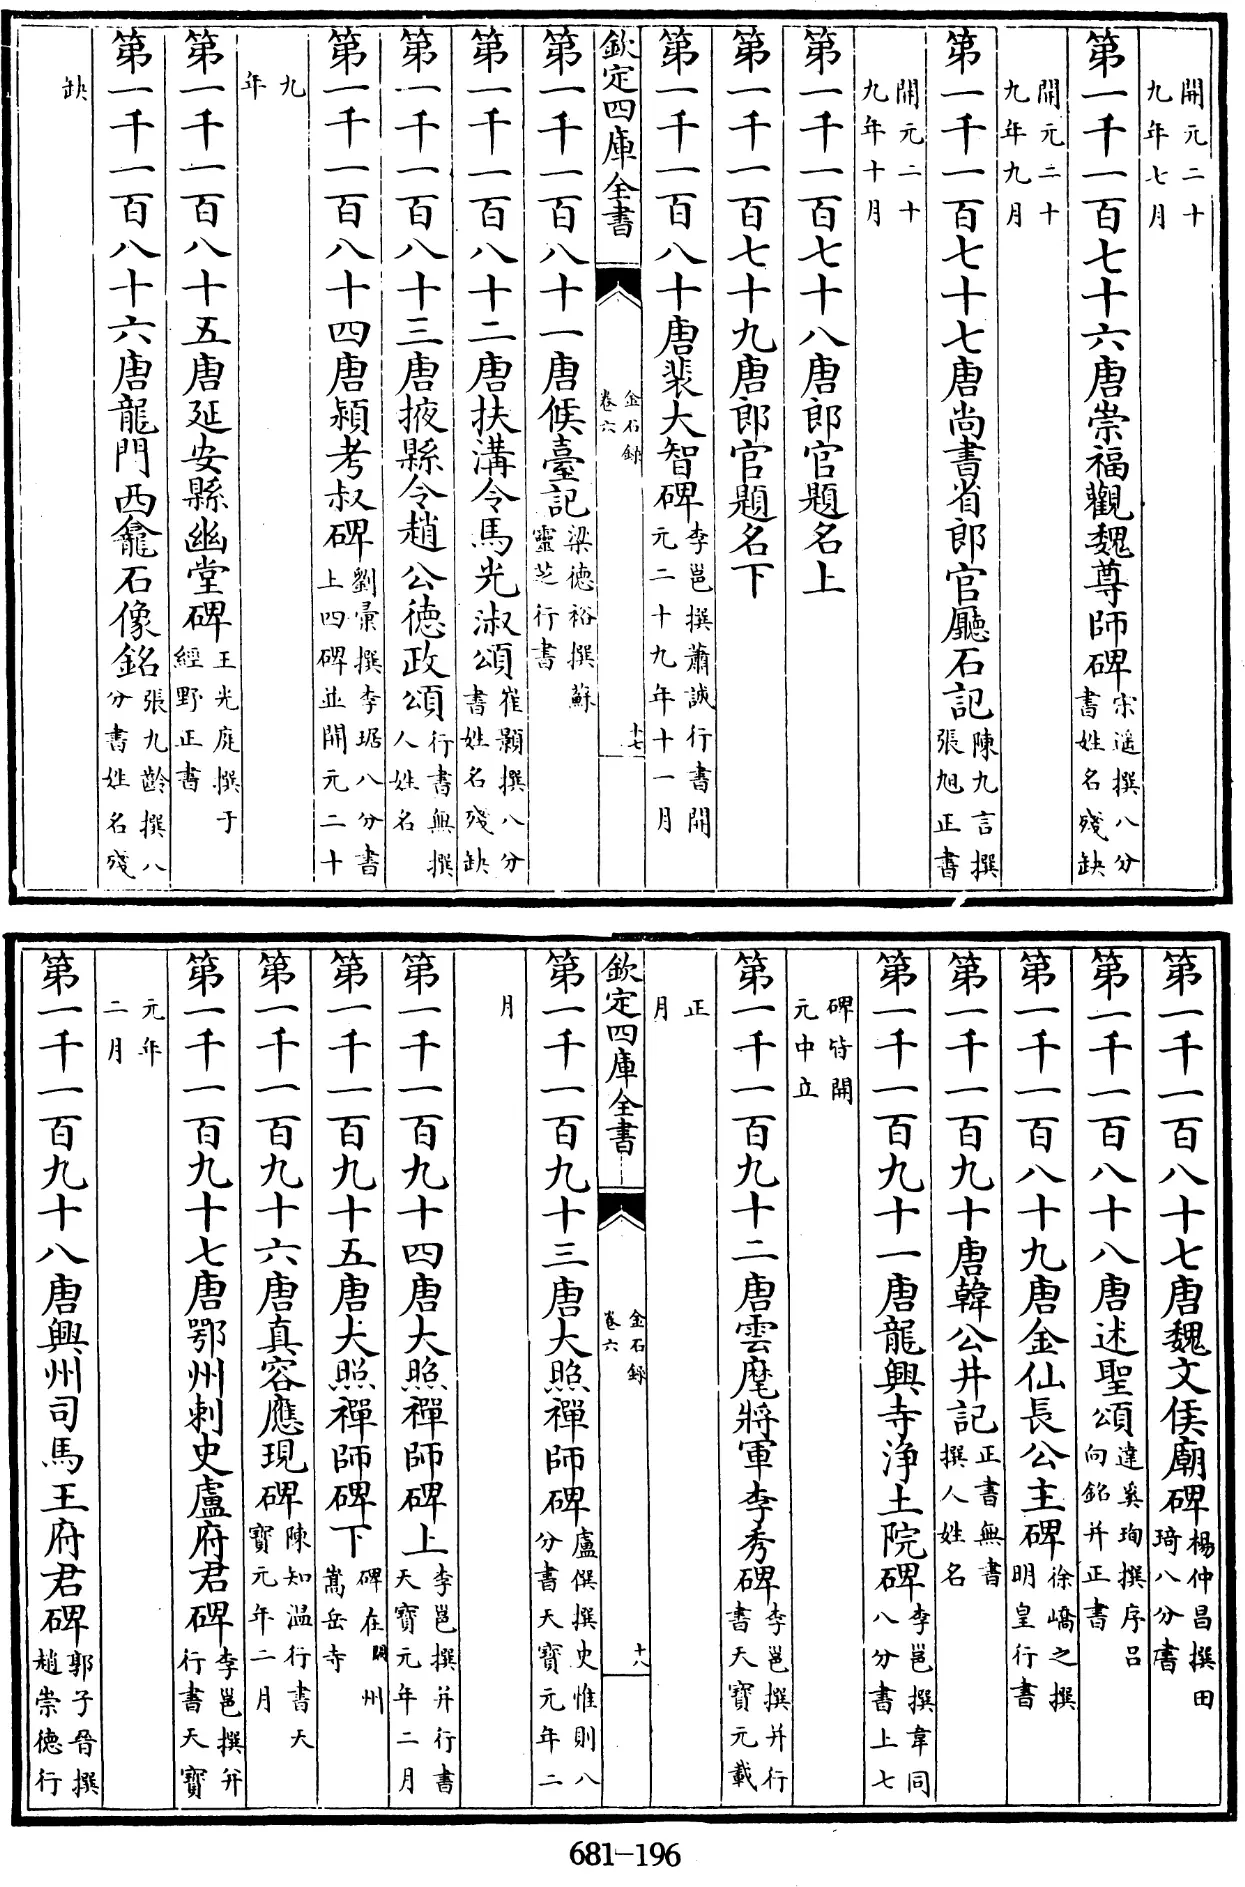 開元二十
九年七月
第一千一百七十六唐崇福觀魏尊師碑宋遥撰八分
書姓名殘缺
開元二十
九年九月
第一千一百七十七唐尚書省郎官廳石記陳九言撰
張旭正書
開元二十
九年十月
第一千一百七十八唐郎官題名上
第一千一百七十九唐郎官題名下
第一千一百八十唐裴大智碑李邕撰蕭誠行書開
元二十九年十一月
欽定四庫全書
金石録
卷六
十七
第一千一百八十一唐候臺記梁德裕撰蘇
靈芝行書
第一千一百八十二唐扶溝令馬光淑頌崔顥撰八分
書姓名殘缺
第一千一百八十三唐掖縣令趙公德政頌行書無撰
人姓名
第一千一百八十四唐潁考叔碑劉彚撰李琚八分書
上四碑並開元二十
九
年
第一千一百八十五唐延安縣幽堂碑王光庭撰于
經野正書
第一千一百八十六唐龍門西龕石像銘張九齡撰八
分書姓名殘
缺
第一千一百八十七唐魏文侯廟碑楊仲昌撰田
琦八分書
第一千一百八十八唐述聖頌達奚珣撰序吕
向銘并正書
第一千一百八十九唐金仙長公主碑徐嶠之撰
明皇行書
第一千一百九十唐韓公井記正書無書
撰人姓名
第一千一百九十一唐龍興寺浄土院碑李邕撰韋同
八分書上七
碑皆開
元中立
第一千一百九十二唐雲麾將軍李秀碑李邕撰并行
書天寶元載
正
月
欽定四庫全書
金石録
卷六
十八
第一千一百九十三唐大照禪師碑盧僎撰史惟則八
分書天寶元年二
月
第一千一百九十四唐大照禪師碑上李邕撰并行書
天寶元年二月
第一千一百九十五唐大照禪師碑下碑在闕州
嵩岳寺
第一千一百九十六唐真容應現碑陳知温行書天
寶元年二月
第一千一百九十七唐鄂州刺史盧府君碑李邕撰并
行書天寶
元年
二月
第一千一百九十八唐興州司馬王府君碑郭子晉撰
趙崇德行
681-196